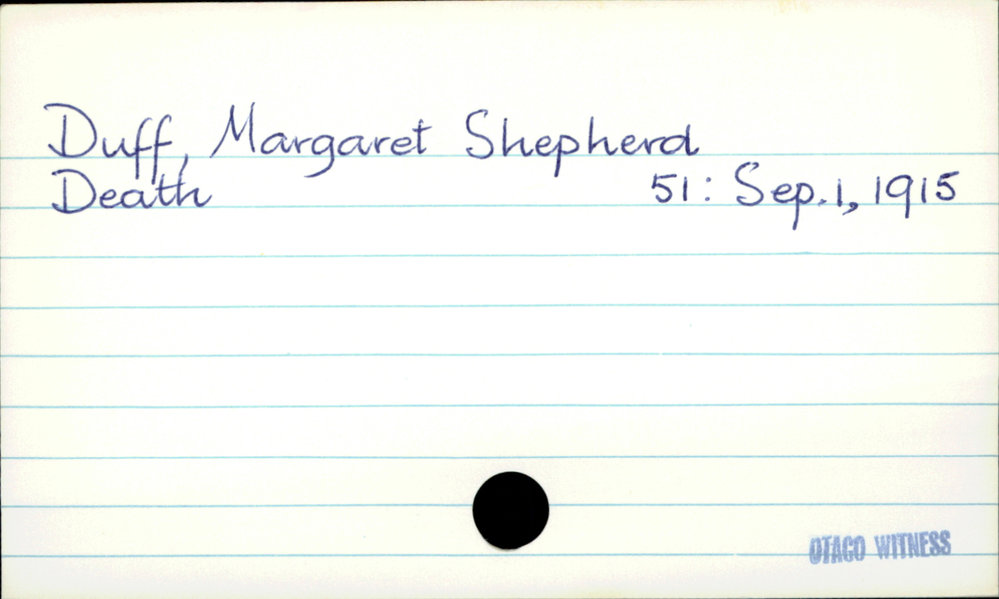 Duff, Margaret Shepherd
Death 51: Sep. 1, 1915
OTAGO WITNESS